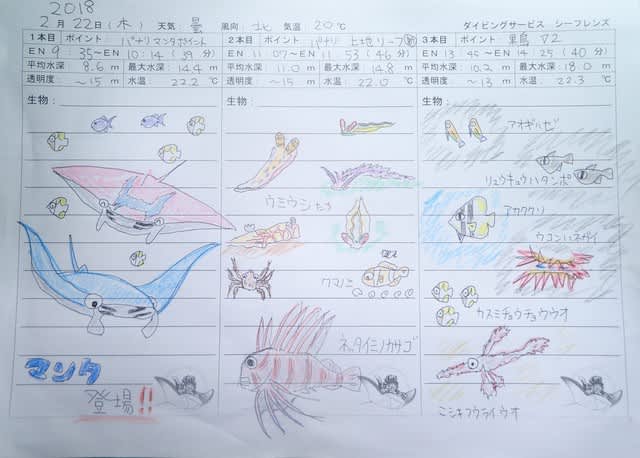 2018
2月 22日 (木) 天気: 曇 風向: 北 気温 20℃ ダイビングサービス シーフレンズ
1本目 ポイント パナリ マンタポイント
EN 9:35~EN 10:14 (39 分)
平均水深 8.6 m 最大水深 14.4 m
透明度 ~15 m 水温: 22.2 ℃
生物:
マンタ
登場!!
2本目 ポイント パナリ 上地リーフ
EN 11:07~EN 11:53 (46 分)
平均水深 11.0 m 最大水深 14.8 m
透明度 ~15 m 水温: 22.0 ℃
生物:
ウミウシたち
クマノミ
ネッタイミノカサゴ
3本目 ポイント 黒島 V2
EN 13:45~EN 14:25 (40 分)
平均水深 10.2 m 最大水深 18.0 m
透明度 ~13 m 水温: 22.3 ℃
生物:
アオギハゼ
リュウキュウハタンポ
アカククリ
ウコンハネガイ
カスミチョウチョウウオ
ニシキフウライウオ